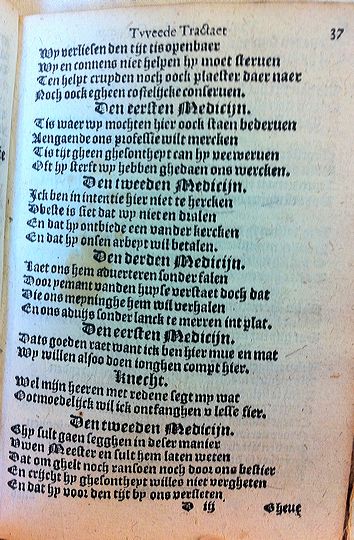 Tvveede Tractaet 37
Wy verliesen den tijt tis openbaer
Wy en connens niet helpen hy moet sterven
Ten helpt cruyden noch oock plaester daer naer
Noch oock egheen costelijcke conserven.
Den eersten Medicijn.
Tis waer wy mochten hier oock staen bederven
Aengaende ons professie wilt mercken
Tis tijt gheen ghesontheyt can hy verwerven
Oft hy sterft wy hebben ghedaen ons wercken.
Den tweeden Medicijn.
Ick ben in intentie hier niet te hercken
Dbeste is siet dat wy niet en dralen
En dat hy ontbiede een vander kercken
En dat hy onsen arbeyt wil betalen.
Den derden Medicijn.
Laet ons hem adverteren sonder falen
Door yemant vanden huyse verstaet doch dat
Die ons meyninghe hem wil verhalen
En ons advijs sonder lanck te merren int plat.
Den eersten Medicijn.
Dats goeden raet want ick ben hier mue en mat
Wy willen alsoo doen ionghen compt hier.
Knecht.
Wel mijn heeren met redene segt my wat
Ootmoedelijck wil ick ontfanghen v lesse fier.
Den tweeden Medicijn.
Ghy sult gaen segghen in deser manier
Vwen Meester en sult hem laten weten
Dat om ghelt noch ransoen noch door ons bestier
En crijcht hy ghesontheyt willes niet vergheten
En dat hy voor den tijt by ons versleten
D iij Gheve